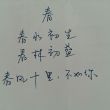 春
春水初生
春林初盛
春风十里，不如你